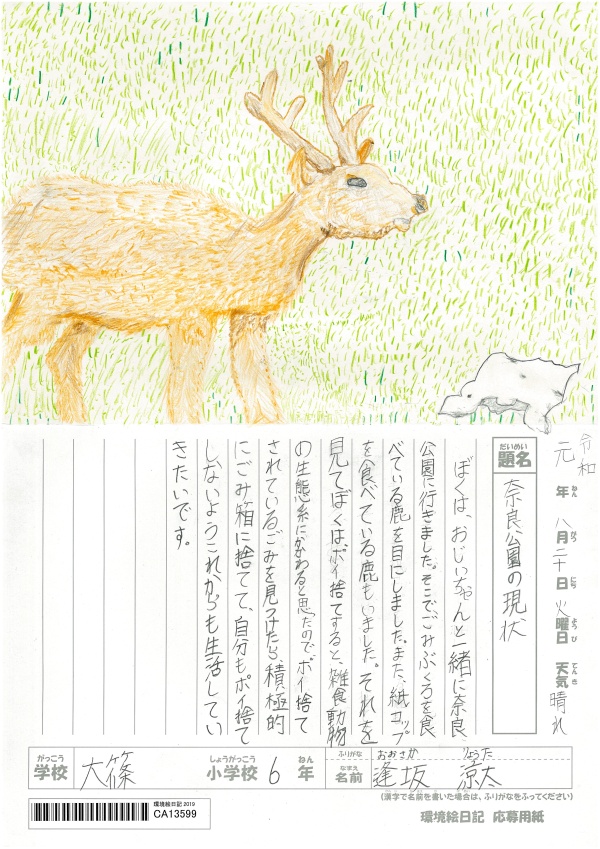 令和
元年 八月二十日 火曜日 天気 晴れ
ねん がつ にち ようび てんき
だいめい
題名
奈良公園の現状
ぼくは、おじいちゃんと一緒に奈良
公園に行きました。そこで、ごみぶくろを食
べている鹿を目にしました。また、紙コップ
を食べている鹿もいました。それを
見てぼくは、ポイ捨てすると、雑食動物
の生態系にかかわると思たので、ポイ捨て
されているごみを見つけたら、積極的
にごみ箱に捨てて、自分もポイ捨て
しないようこれからも生活してい
きたいです。
がっこう しょうがっこう ねん
学校 大篠 小学校 6 年
ふりがな おおさか りょうた
なまえ
名前 逢坂 涼太
(漢字で名前を書いた場合は、ふりがなをふってください)
環境絵日記 2019
CA13599
環境絵日記 応募用紙